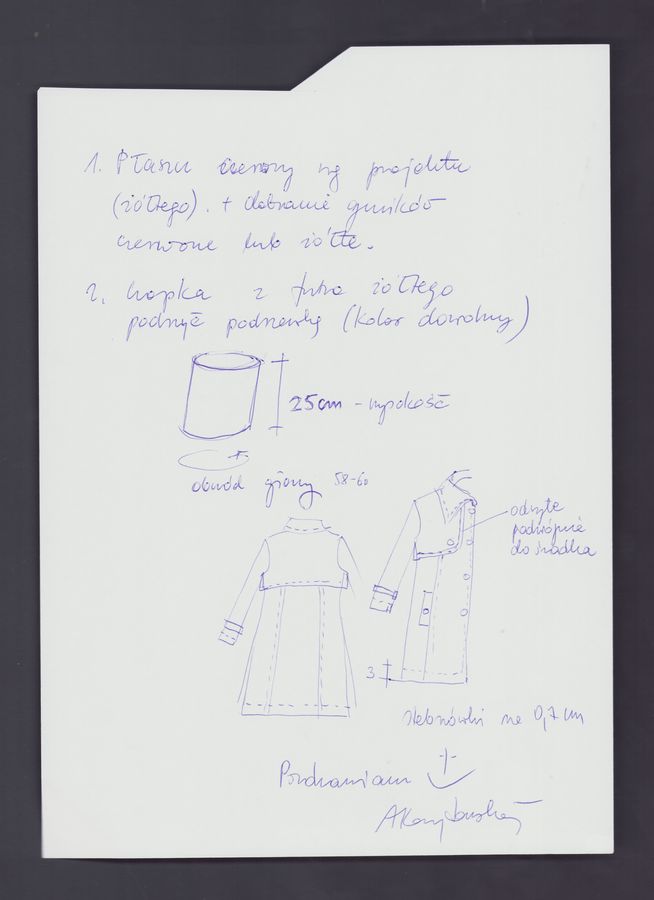 1. Płaszcz czerwony wg projektu
(żółtego). + dobranie guzików
czerwone lub żółte.
2. Czapka z futra żółtego
podszyć podszewką (kolor dowolny)
25cm - wysokość
obwód głowy 58-60
odszyte
podwójnie
do środka
3
Stebnówki na 0,7 cm
Pozdrawiam